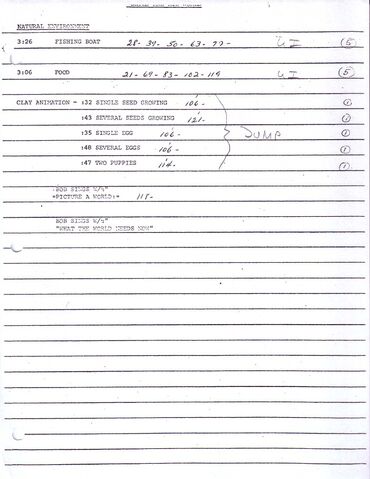 NATURAL ENVIRONMENT
3:26 FISHING BOAT 28-39-50-63-77- UI (5)
3:06 FOOD 21-69-83-102-119 UI (5)
CLAY ANIMATION - :32 SINGLE SEED GROWING 106- (1)
:43 SEVERAL SEEDS GROWING 121- (1)
:35 SINGLE EGG 106- DUMP (1)
:48 SEVERAL EGGS 106- (1)
:47 TWO PUPPIES 114- (1)
BOB SINGS W/
"PICTURE A WORLD:" 118-
BOB SINGS W/
"WHAT THE WORLD NEEDS NOW"